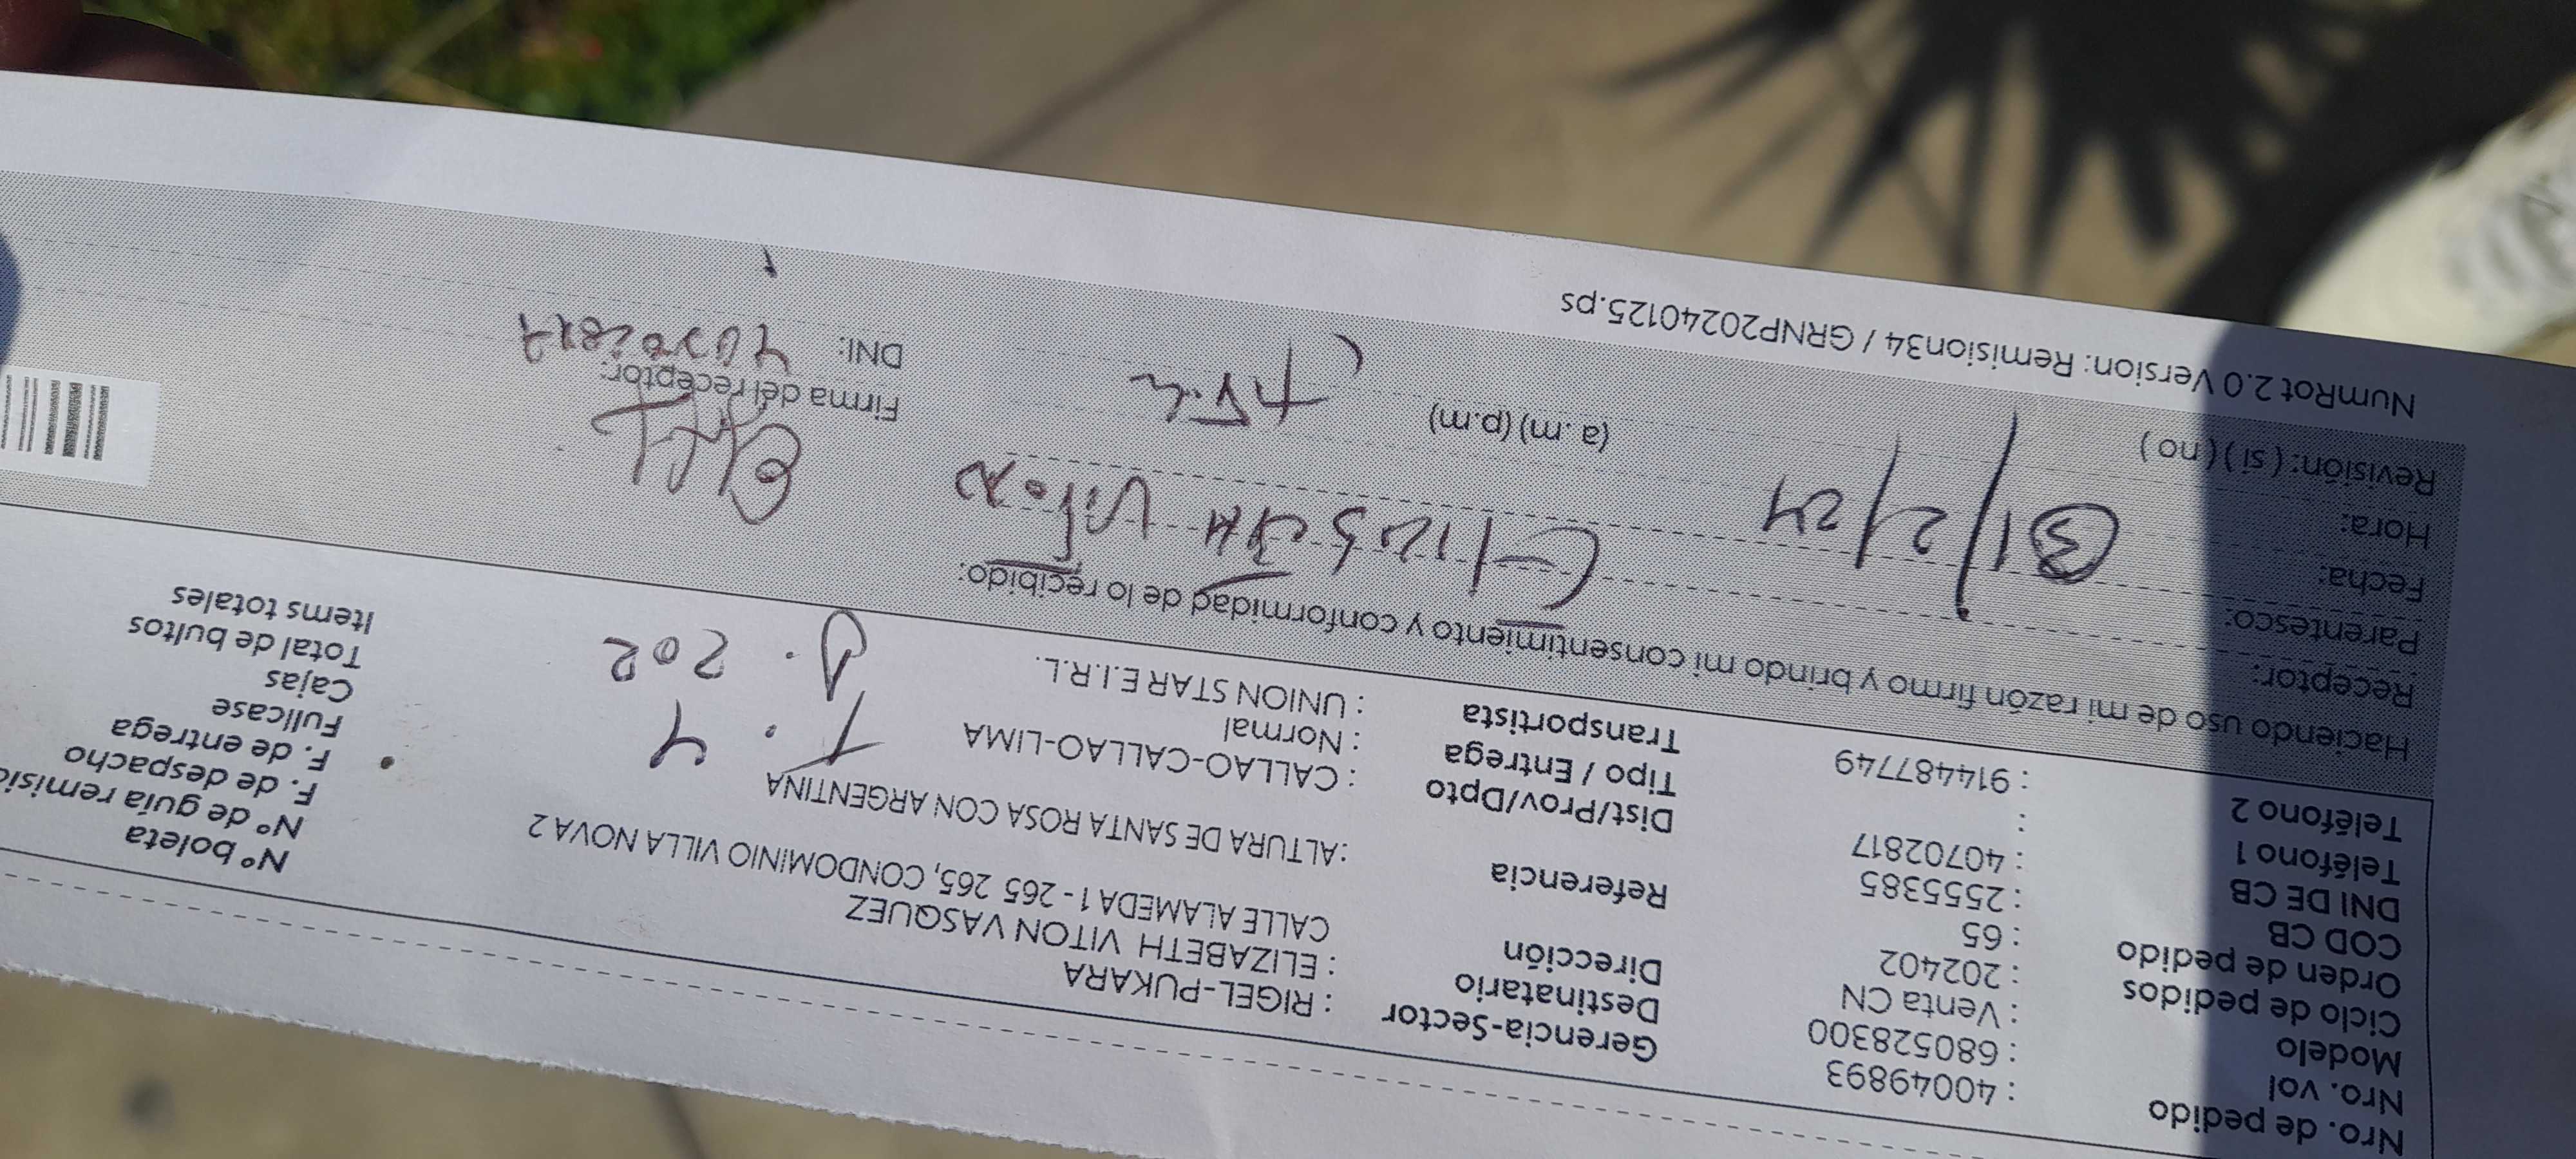 Nro. de pedido : 40049893
Nro. vol : 680528300
Modelo : Venta CN
Ciclo de pedidos : 202402
Orden de pedido : 65
COD CB : 2555385
DNI DE CB : 40702817
Teléfono 1 :
Teléfono 2 : 914487749
Gerencia-Sector : RIGEL-PUKARA
Destinatario : ELIZABETH VITON VASQUEZ
Dirección CALLE ALAMEDA 1 - 265 265, CONDOMINIO VILLA NOVA 2
Referencia :ALTURA DE SANTA ROSA CON ARGENTINA
Dist/Prov/Dpto : CALLAO-CALLAO-LIMA
Tipo / Entrega : Normal
Transportista : UNION STAR E.I.R.L.
T. 4
D. 202
Nº boleta
Nº de guía remisi
F. de despacho
F. de entrega
Fullcase
Cajas
Total de bultos
Items totales
Haciendo uso de mi razón firmo y brindo mi consentimiento y conformidad de lo recibido:
Receptor:
Parentesco:
Fecha:
Hora: (a .m) (p.m)
Revisión: ( si ) ( no )
Firma del receptor:
DNI:
NumRot 2.0 Version: Remision34 / GRNP20240125.ps